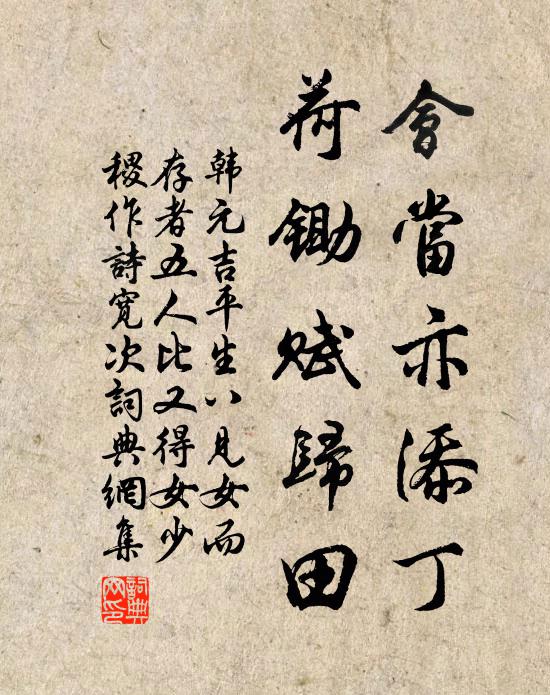 會當亦添丁
荷鋤賦歸田
韩元吉平生八見女而
存者五人比又得女少
稷作詩寬次詞典網集
詞典
网印